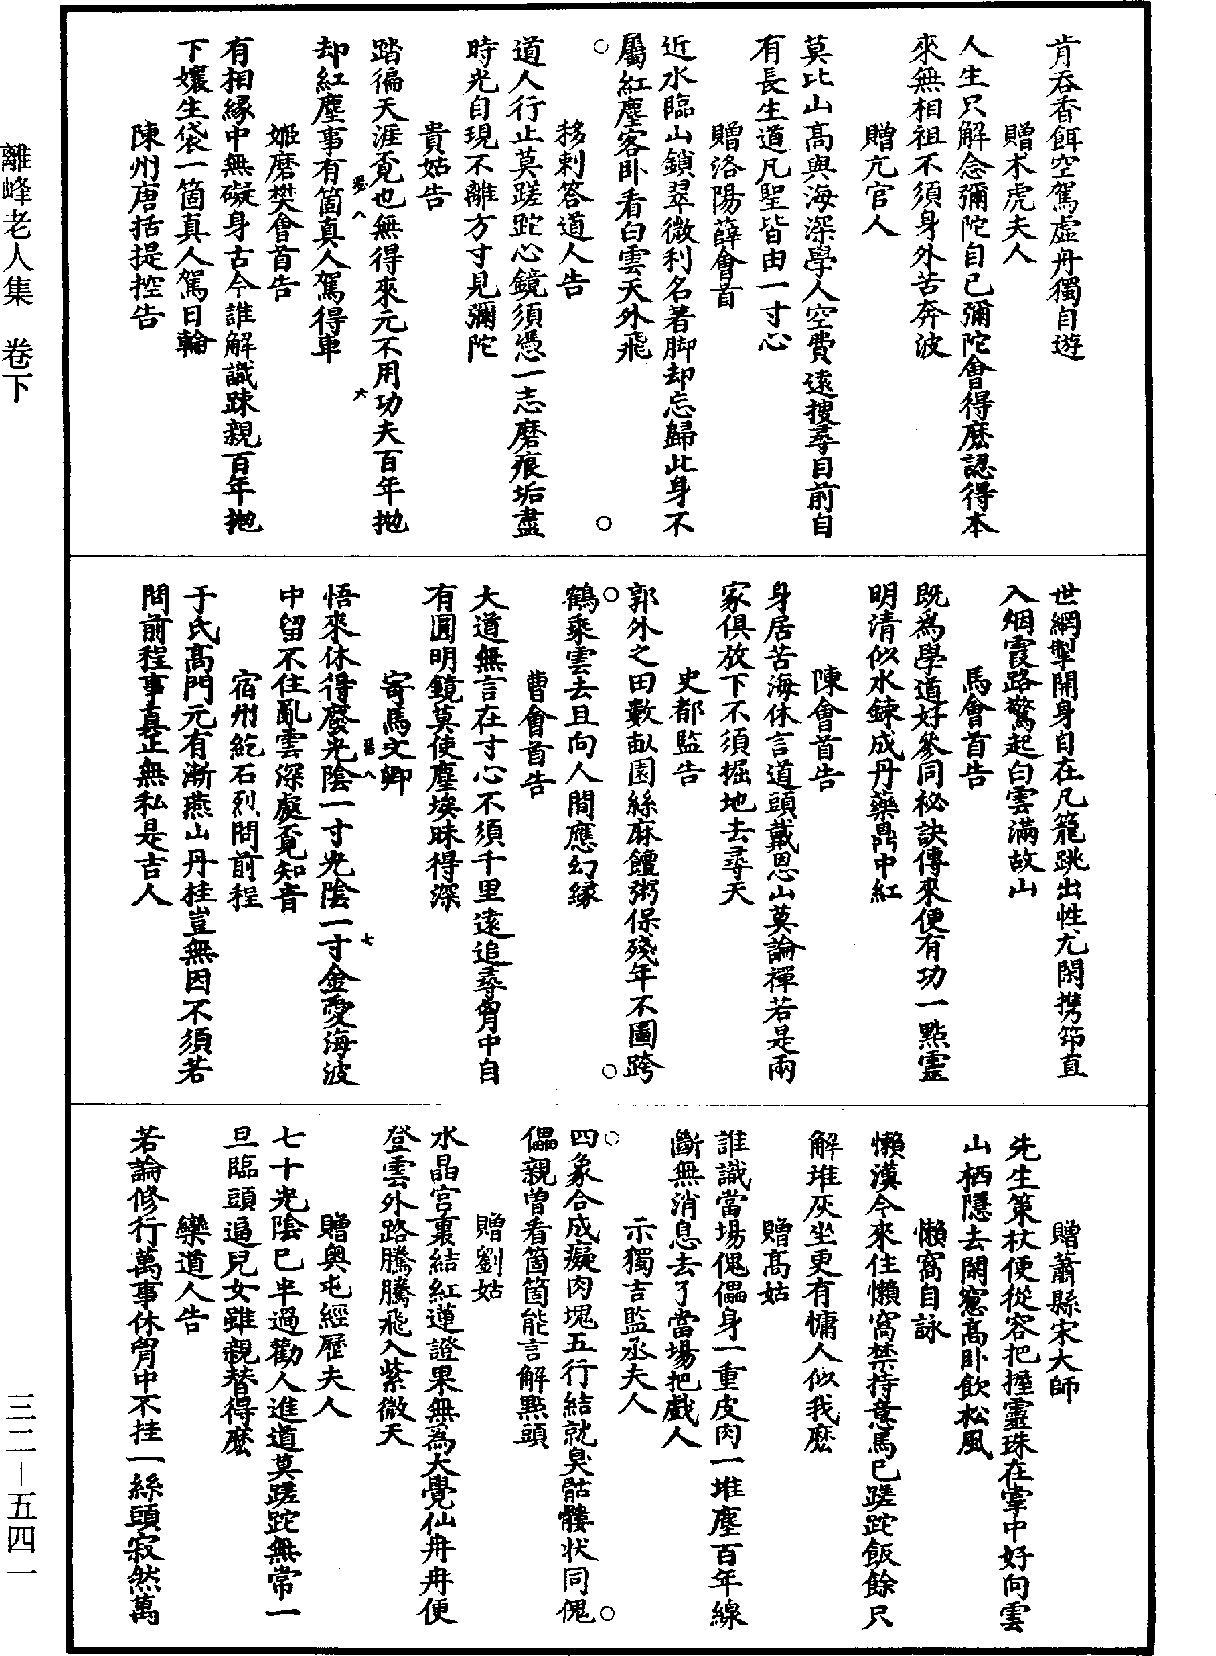 肯吞香餌空駕虛舟獨自遊
贈术虎夫人
人生只解念彌陀自己彌陀會得麼認得本
來無相祖不須身外苦奔波
贈亢官人
莫比山高與海深學人空費遠搜尋目前自
有長生道凡聖皆由一寸心
贈洛陽薛會首
近水臨山鎖翠微利名著脚却忘歸此身不
屬紅塵客卧看白雲天外飛
移剌答道人告
道人行止莫蹉跎心鏡須憑一志磨痕垢盡
時光自現不離方寸見彌陀
貴姑告
踏徧天涯覔也無得來元不用功夫百年拋
却紅塵事有箇真人駕得車
姬磨樊會首告
有相緣中無礙身古今誰解識踈親百年拋
下孃生袋一箇真人駕日輪
陳州唐括提控告
世網掣開身自在凡籠跳出性尤閑攜筇直
入烟霞路驚起白雲滿故山
馬會首告
既爲學道好參同祕訣傳來便有功一點靈
明清似水鍊成丹藥鼎中紅
陳會首告
身居苦海休言道頭戴恩山莫論禪若是兩
家俱放下不須掘地去尋天
史都監告
郭外之田數畝園絲麻饘粥保殘年不圖跨
鶴乘雲去且向人間應幻緣
曹會首告
大道無言在寸心不須千里遠追尋胷中自
有圓明鏡莫使塵埃昧得深
寄馬文卿
悟來休得廢光陰一寸光陰一寸金愛海波
中留不住亂雲深處覔知音
宿州紇石烈問前程
于氏高門元有漸燕山丹桂豈無因不須若
問前程事真正無私是吉人
贈蕭縣宋大師
先生策杖便從容把握靈珠在掌中好向雲
山栖隱去閑窻高卧飲松風
懶窩自詠
懶漢今來住懶窩禁持意馬已蹉跎飯餘只
解堆灰坐更有慵人似我麼
贈高姑
誰識當場傀儡身一重皮肉一堆塵百年線
斷無消息去了當場把戲人
示獨吉監丞夫人
四象合成癡肉塊五行結就臭骷髏狀同傀
儡親曾看箇箇能言解點頭
贈劉姑
水晶宮裏結紅蓮證果無爲大覺仙冉冉便
登雲外路騰騰飛入紫微天
贈奧屯經歷夫人
七十光陰已半過勸人進道莫蹉跎無常一
旦臨頭逼兒女雖親替得麼
欒道人告
若論修行萬事休胷中不挂一絲頭寂然萬
離峰老人集　卷下
三二—五四一